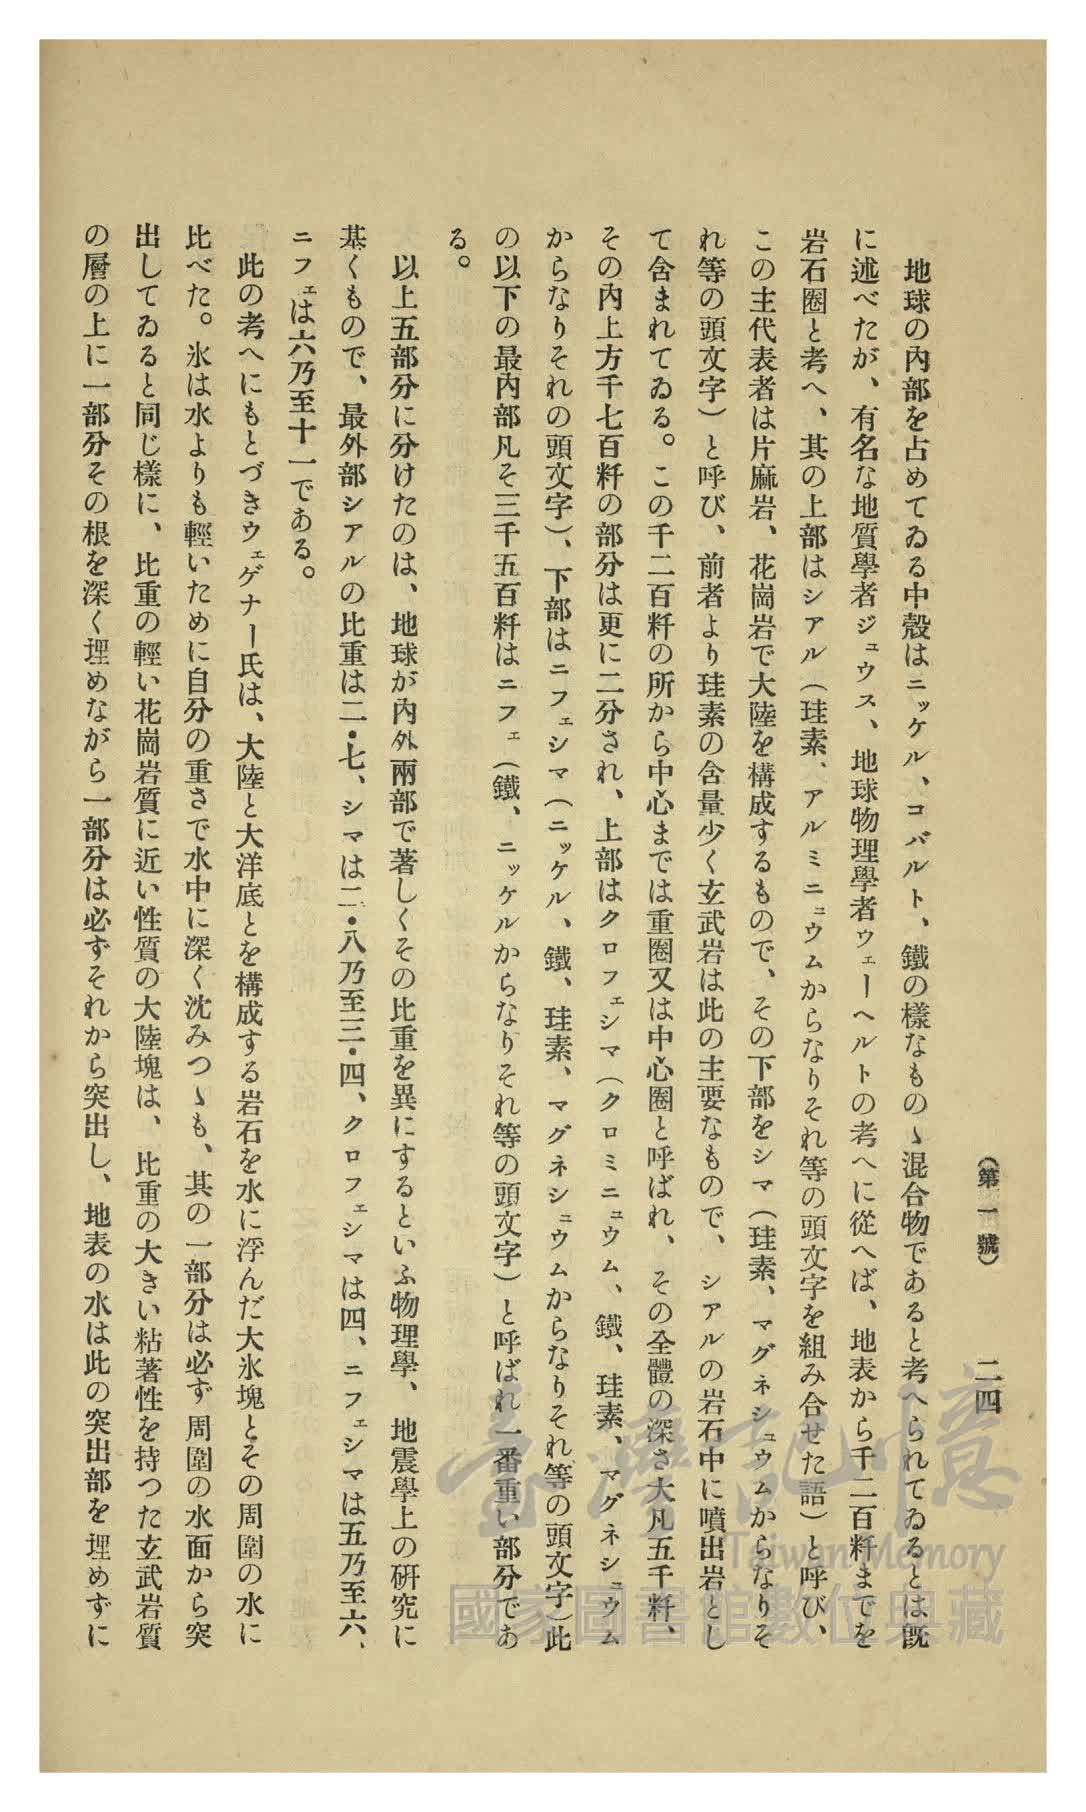 （第一號）　二四
　地球の內部を占めてゐる中殼はニッケル、コバルト、鐵の樣なものゝ混合物であると考へられてゐるとは旣
に述べたが、有名な地質學者ジュウス、地球物理學者ウェーヘルトの考へに從へば、地表から千二百粁までを
岩石圈と考へ、其の上部はシアル（珪素、アルミニュウムからなりそれ等の頭文字を組み合せた語）と呼び、
この主代表者は片麻岩、花崗岩で大陸を構成するもので、その下部をシマ（珪素、マグネシュウムからなりそ
れ等の頭文字）と呼び、前者より珪素の含量少く玄武岩は此の主要なもので、シアルの岩石中に噴出岩とし
て含まれてゐる。この千二百粁の所から中心までは重圈又は中心圈と呼ばれ、その全體の深さ大凡五千粁、
その內上方千七百粁の部分は更に二分され、上部はクロフェシマ（クロミニュウム、鐵、珪素、マグネシュウム
からなりそれの頭文字）、下部はニフェシマ（ニッケル、鐵、珪素、マグネシュウムからなりそれ等の頭文字）此
の以下の最內部凡そ三千五百粁はニフェ（鐵、ニッケルからなりそれ等の頭文字）と呼ばれ一番重い部分であ
る。
　以上五部分に分けたのは、地球が內外兩部で著しくその比重を異にするといふ物理學、地震學上の硏究に
基くもので、最外部シアルの比重は二・七、シマは二・八乃至三・四、クロフェシマは四、ニフェシマは五乃至六、
ニフェは六乃至十一である。
　此の考へにもとづきウェゲナー氏は、大陸と大洋底とを構成する岩石を水に浮んだ大氷塊とその周圍の水に
比べた。氷は水よりも輕いために自分の重さで水中に深く沈みつゝも、其の一部分は必ず周圍の水面から突
出してゐると同じ樣に、比重の輕い花崗岩質に近い性質の大陸塊は、比重の大きい粘著性を持つた玄武岩質
の層の上に一部分その根を深く埋めながら一部分は必ずそれから突出し、地表の水は此の突出部を埋めずに
臺灣記憶
Taiwan Memory
國家圖書館數位典藏